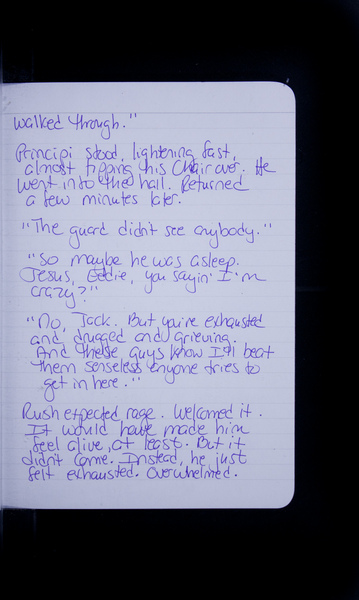 walked through."
Principi stood, lightening fast,
almost tipping his chair over. He
went into the hall. Returned
a few minutes later.
"The guard didn't see anybody."
"So maybe he was asleep.
Jesus, Eddie, you sayin' I'm
crazy?"
"No, Jack. But you're exhausted
and drugged and grieving.
And these guys know I'll beat
them senseless anyone tries to
get in here."
Rush expected rage. Welcomed it.
It would have made him
feel alive, at least. But it
didn't come. Instead, he just
felt exhausted. Overwhelmed.